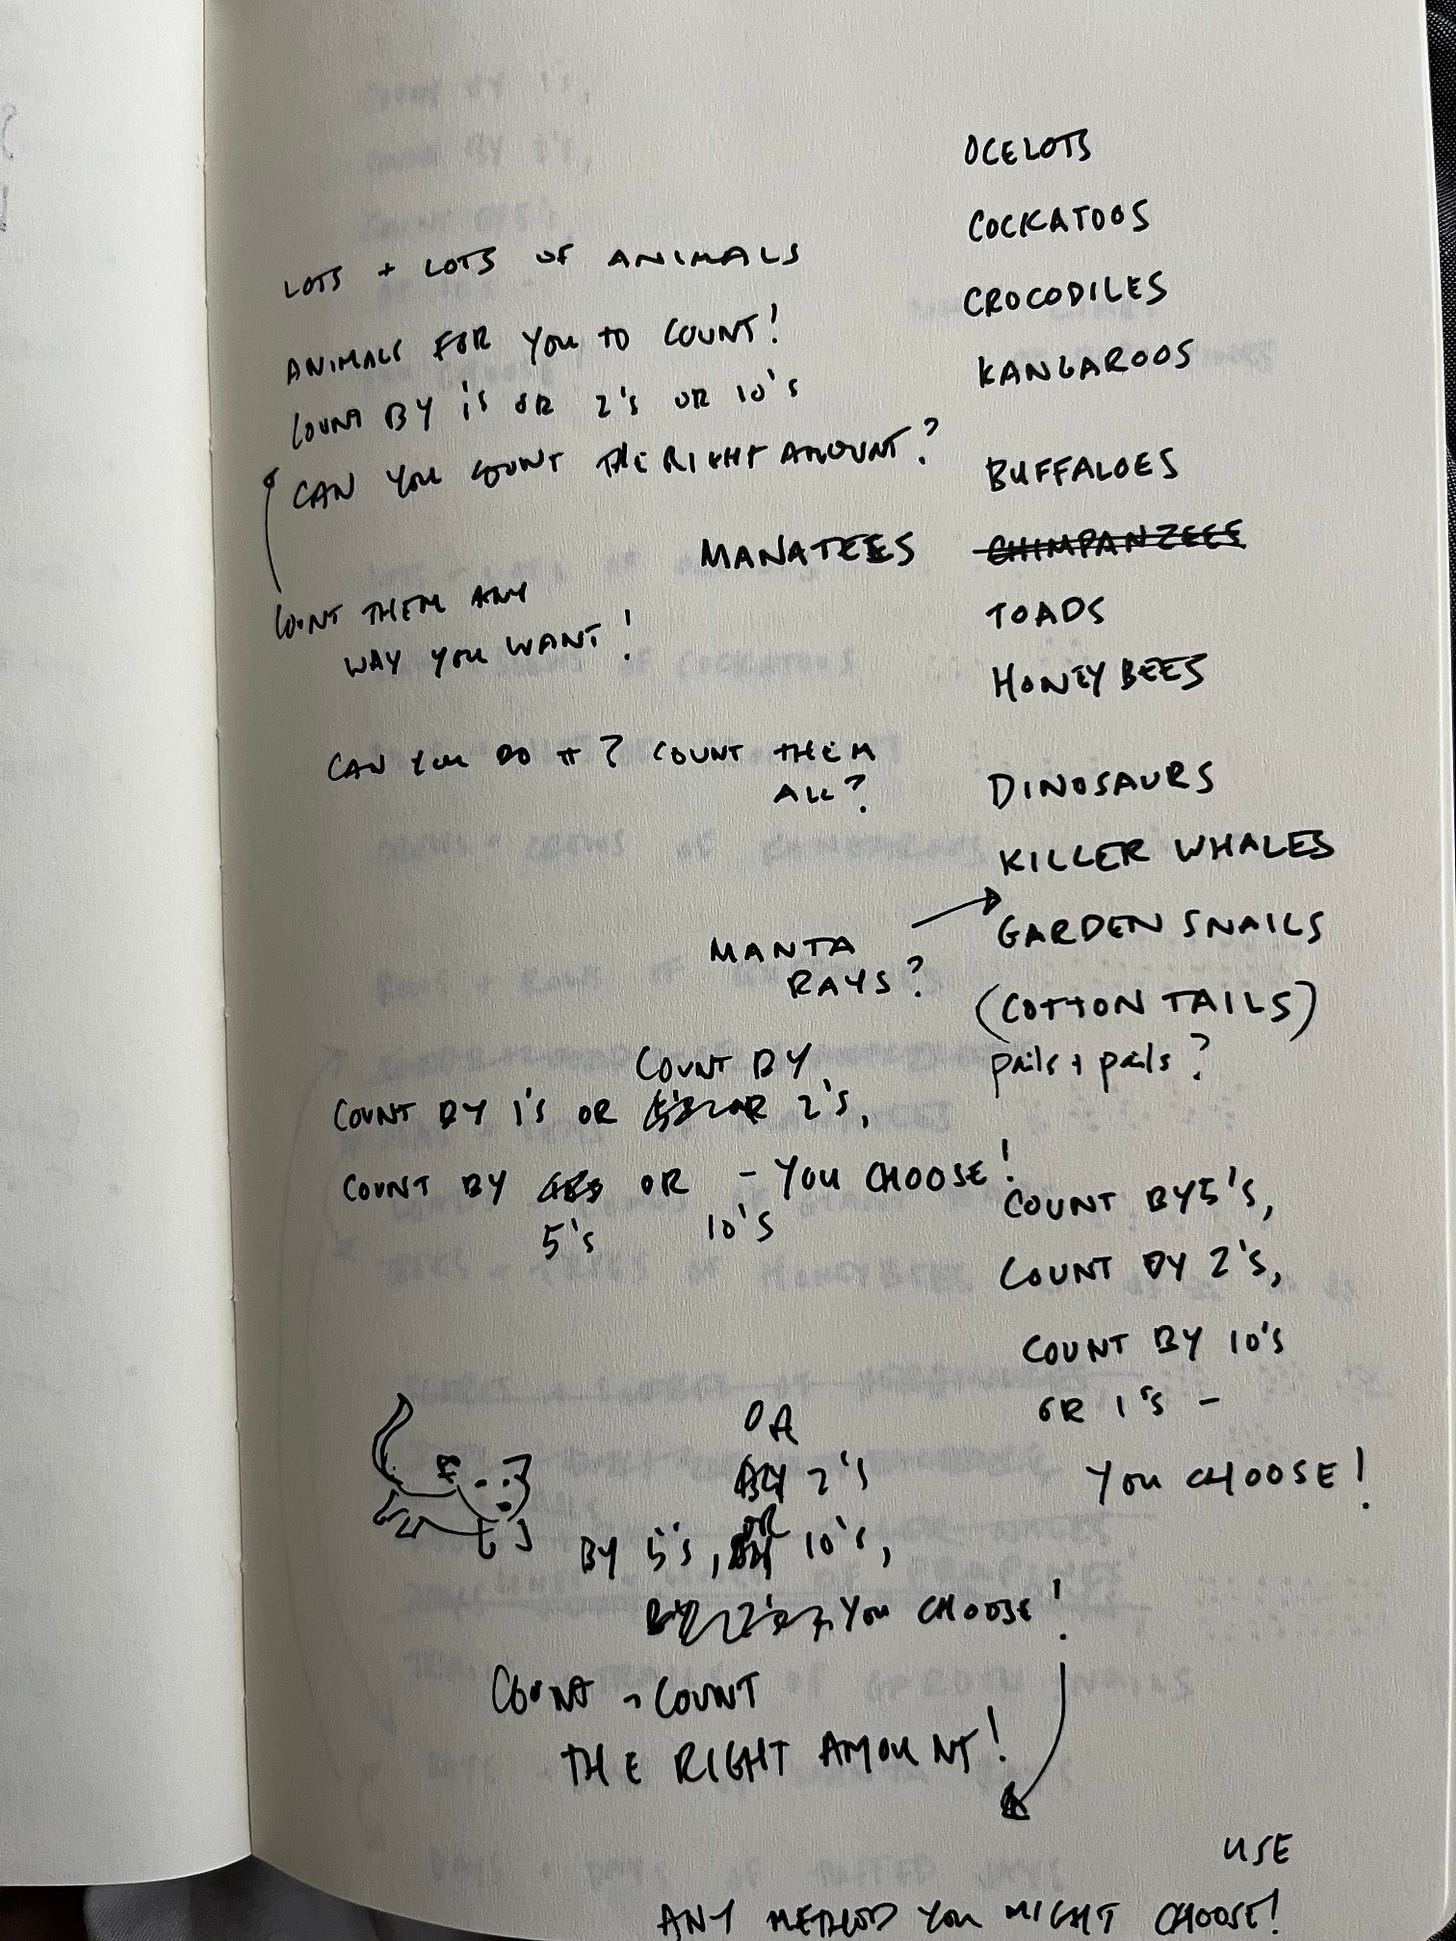 OCELOTS
COCKATOOS
CROCODILES
KANGAROOS
BUFFALOES
CHIMPANZEES
TOADS
HONEY BEES
DINOSAURS
KILLER WHALES
GARDEN SNAILS
(COTTON TAILS)
pails + pails?
LOTS + LOTS OF ANIMALS
ANIMALS FOR YOU TO COUNT!
COUNT BY 1'S OR 2'S OR 10'S
CAN YOU COUNT THE RIGHT AMOUNT?
MANATEES
COUNT THEM ANY
WAY YOU WANT!
CAN YOU DO IT? COUNT THEM
ALL?
MANTA
RAYS?
COUNT BY
COUNT BY 1'S OR 2'S,
COUNT BY OR - YOU CHOOSE!
5'S 10'S
COUNT BY 5'S,
COUNT BY 2'S,
COUNT BY 10'S
OR 1'S -
YOU CHOOSE!
OR
BY 2'S
OR
BY 5'S, 10'S,
YOU CHOOSE!
COUNT + COUNT
THE RIGHT AMOUNT!
USE
ANY METHOD YOU MIGHT CHOOSE!